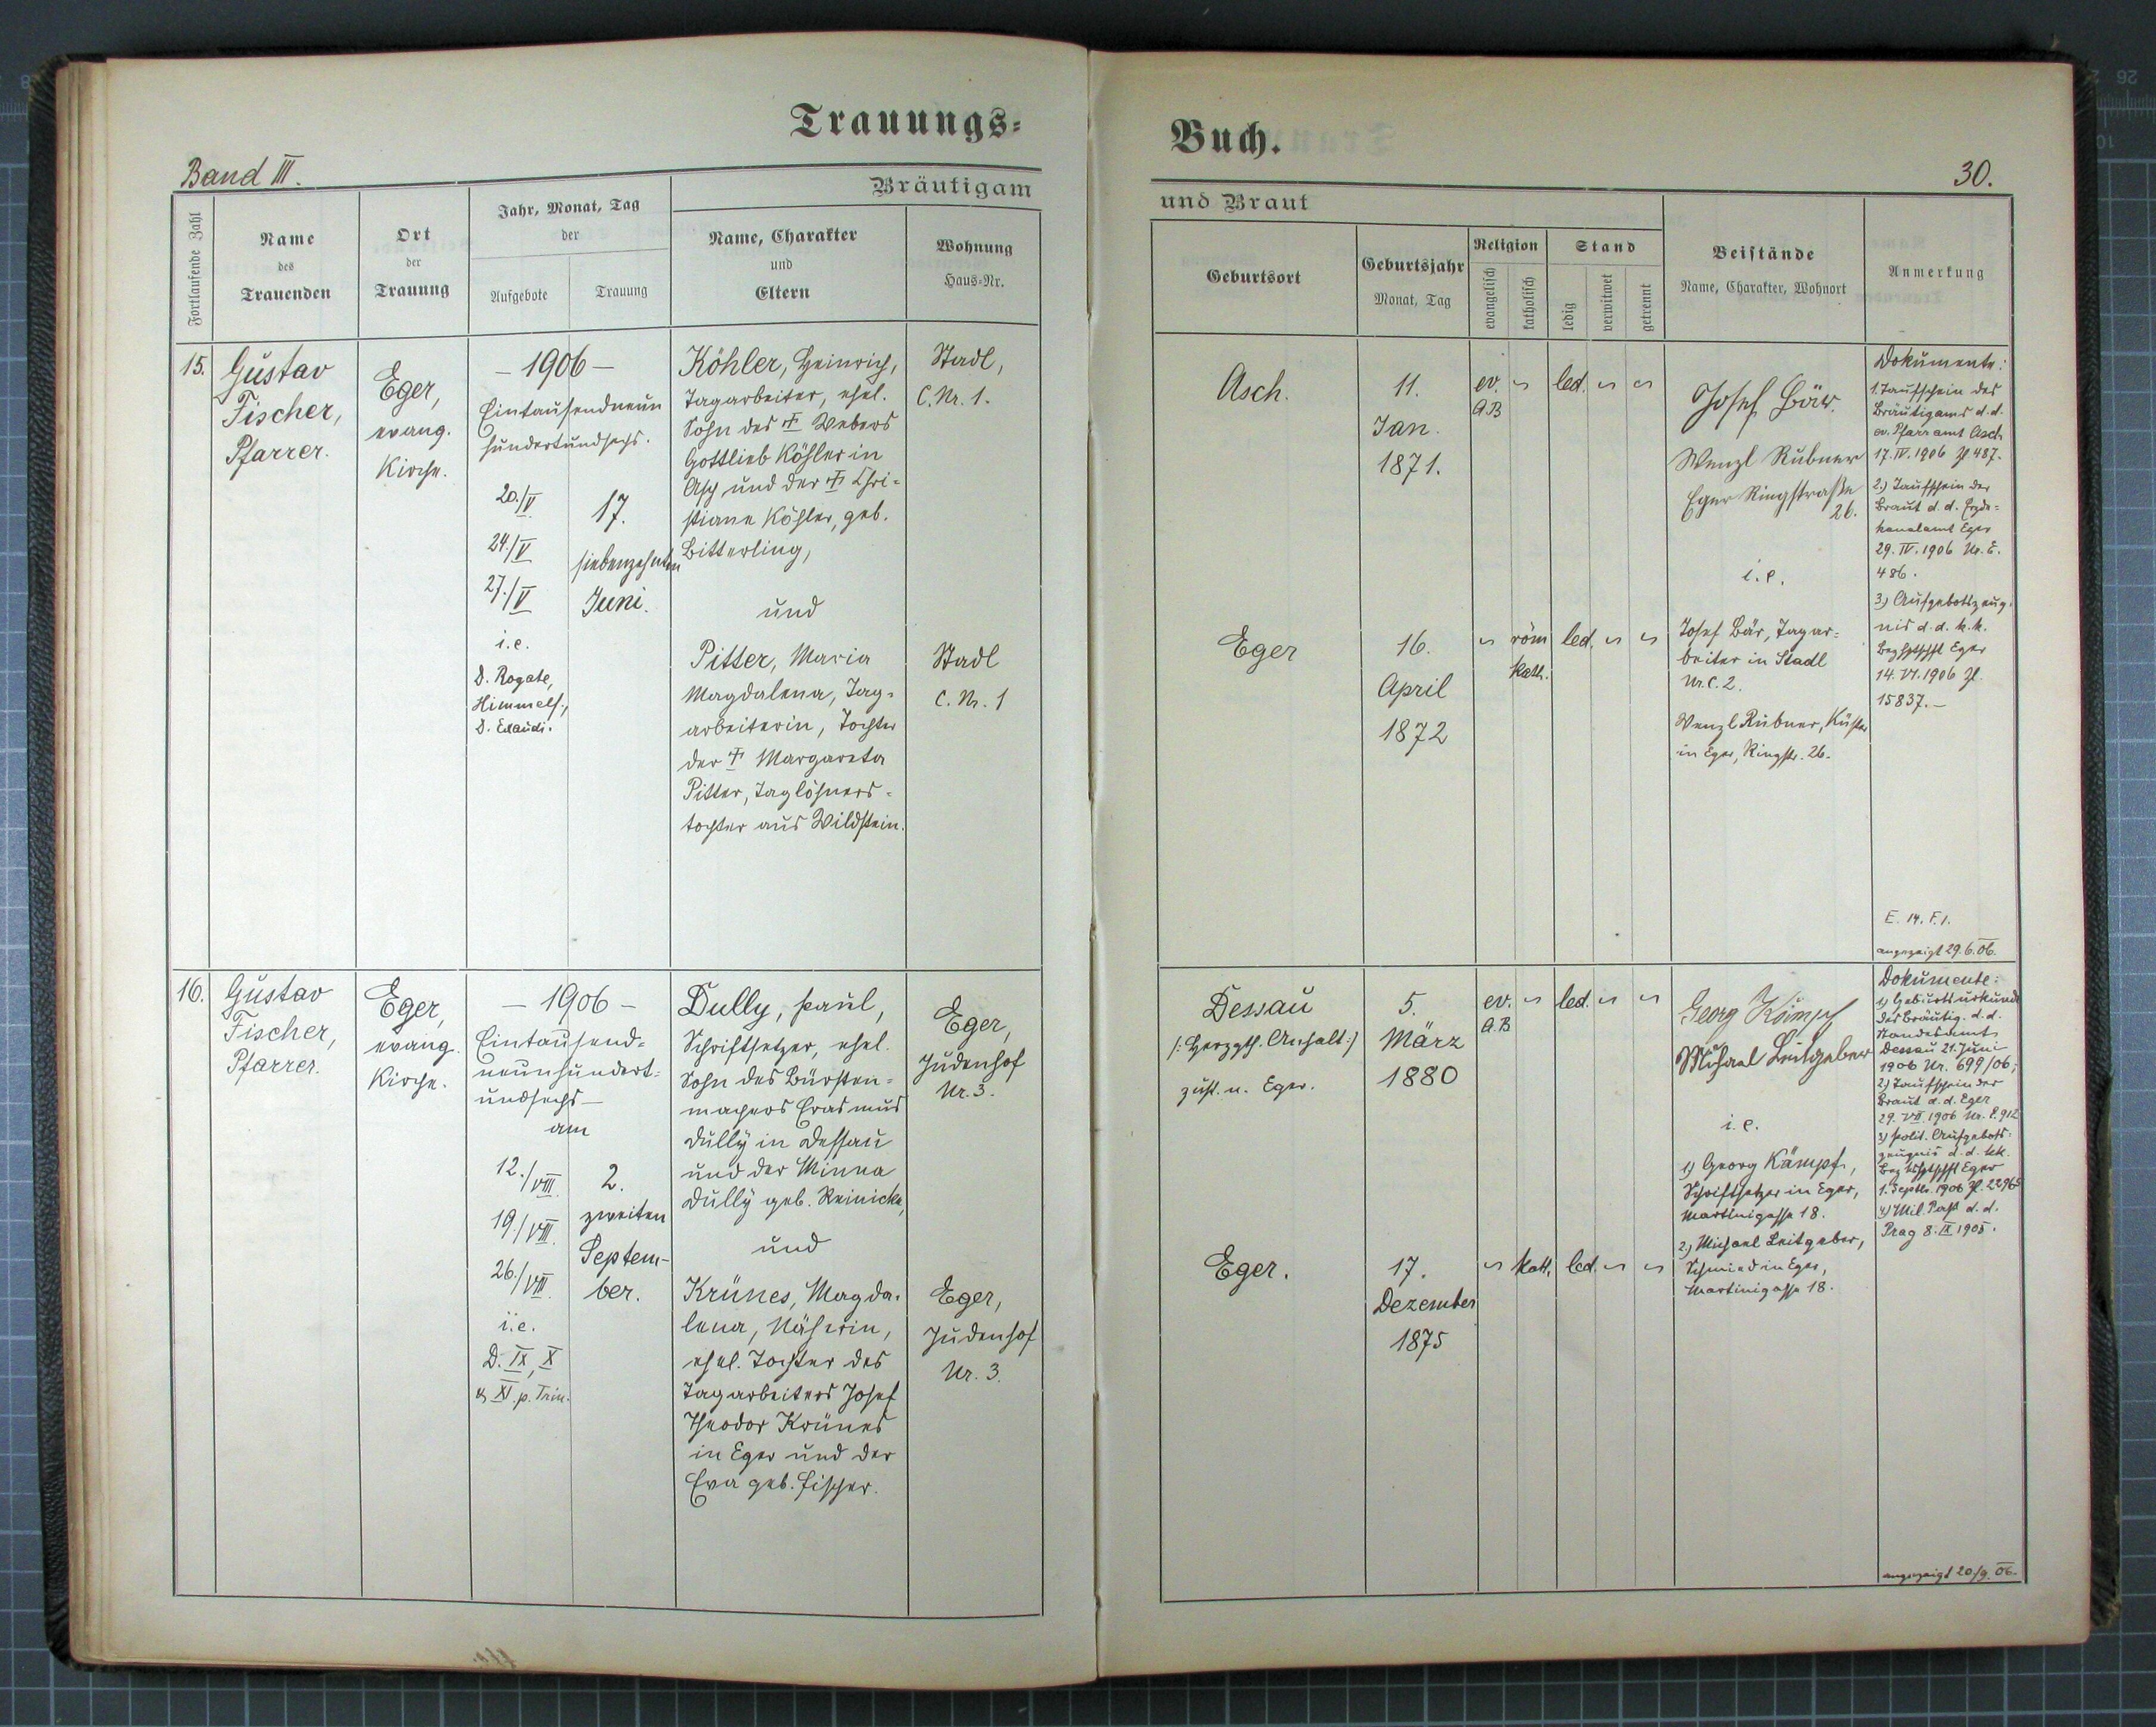 Trauungs=
Band III.
Fortlaufende Zahl
Name
des
Trauenden
Ort
der
Trauung
Jahr, Monat, Tag
der
Aufgebote
Trauung
Bräutigam
Name, Charakter
und
Eltern
Wohnung
Haus=Nr.
15.
Gustav
Fischer,
Pfarrer.
Eger,
evang.
Kirche.
– 1906 –
Eintausendneun
hundertundsechs.
20./V
24./V
27./V
i.e.
D. Rogate,
Himmelf.,
D. Exaudi.
17.
siebenzehnten
Juni.
Köhler, Heinrich,
Tagarbeiter, ehel.
Sohn des † Webers
Gottlieb Köhler in
Asch und der † Chri-
stiane Köhler, geb.
Bitterling,
und
Pitter, Maria
Magdalena, Tag-
arbeiterin, Tochter
der † Margareta
Pitter, Taglöhners-
tochter aus Wildstein.
Stadl,
C. Nr. 1.
Stadl
C. Nr. 1
16.
Gustav
Fischer,
Pfarrer.
Eger,
evang.
Kirche.
– 1906 –
Eintausend=
neunhundert=
undsechs –
am
12./VIII.
19./VIII.
26./VIII.
i.e.
D. IX, X
& XI p. Trin.
2.
zweiten
Septem-
ber.
Dully, Paul,
Schriftsetzer, ehel.
Sohn des Bürsten=
machers Erasmus
Dully in Dessau
und der Minna
Dully geb. Reinicke,
und
Krünes, Magda-
lena, Näherin,
ehel. Tochter des
Tagarbeiters Josef
Theodor Krünes
in Eger und der
Eva geb. Fischer.
Eger,
Judenhof
Nr. 3.
Eger,
Judenhof
Nr. 3.
Buch.
30.
und Braut
Geburtsort
Geburtsjahr
Monat, Tag
Religion
evangelisch
katholisch
Stand
ledig
verwitwet
getrennt
Beistände
Name, Charakter, Wohnort
Anmerkung
Asch.
11.
Jan.
1871.
ev.
A.B
led.
Josef Bär.
Wenzl Rubner
Eger Ringstraße
26.
i.e.
Josef Bär, Tagar-
beiter in Stadl
Nr. C. 2.
Wenzl Rubner, Küster
in Eger, Ringstr. 26.
Eger
16.
April
1872
röm
kath.
led.
Dokumente:
1. Taufschein des
Bräutigams d. d.
ev. Pfarramt Asch
17. IV. 1906 Zl 487.
2.) Taufschein der
Braut d. d. Erzde-
kanalamt Eger
29. IV. 1906 Nr. E.
486.
3.) Aufgebotszeug-
nis d. d. k.k.
Bezhptschft Eger
14. VI. 1906 Zl.
15837. –
E. 14. F. 1.
angezeigt 29.6.06.
Dessau
/: Herzgth. Anhalt :/
zust. n. Eger.
5.
März
1880
ev.
A.B
led.
Georg Kämpf
Michael Leitgeber
i.e.
1) Georg Kämpf,
Schriftsetzer in Eger,
Martinigasse 18.
2.) Michael Leitgeber,
Schmied in Eger,
Martinigasse 18.
Eger.
17.
Dezember
1875
kath.
led.
Dokumente:
1) Geburtsurkunde
des Bräutig. d. d.
Standesamt
Dessau 21. Juni
1906 Nr. 699/06;
2.) Taufschein der
Braut d. d. Eger
29. VII. 1906 Nr. E. 912
3) polit. Aufgebots-
zeugnis d. d. kk.
Bezhptschft Eger
1. Septbr. 1906 Zl. 22965
4) Mil. Paß d. d.
Prag 8. IX 1905.
angezeigt 20/9. 06.